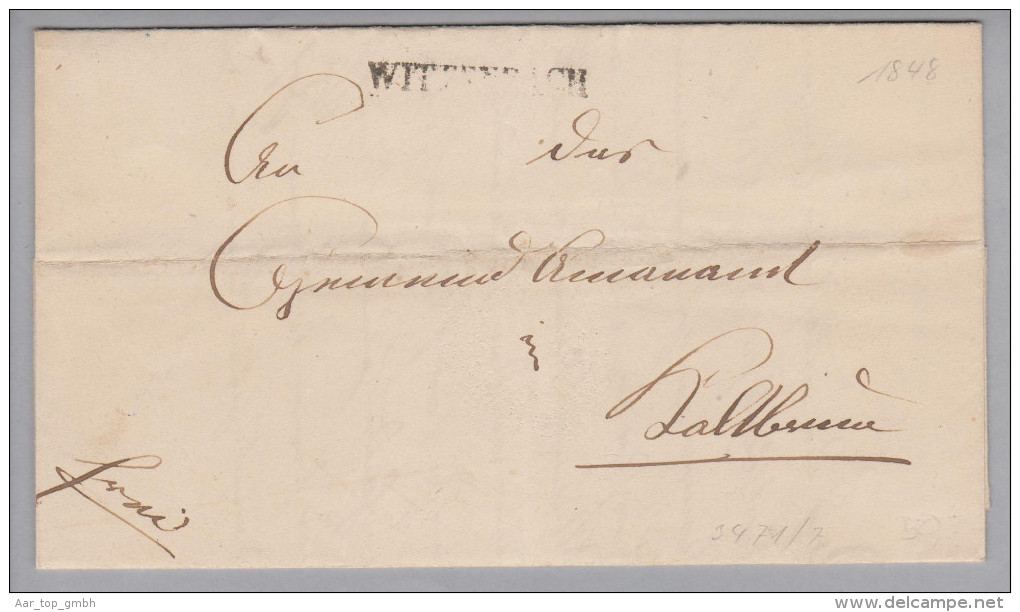 WITTENBACH
1848
An das
Gemeindammanamt
in
Kaltbrunn
frei
3471/7
Aar_top_gmbh
www.delcampe.net